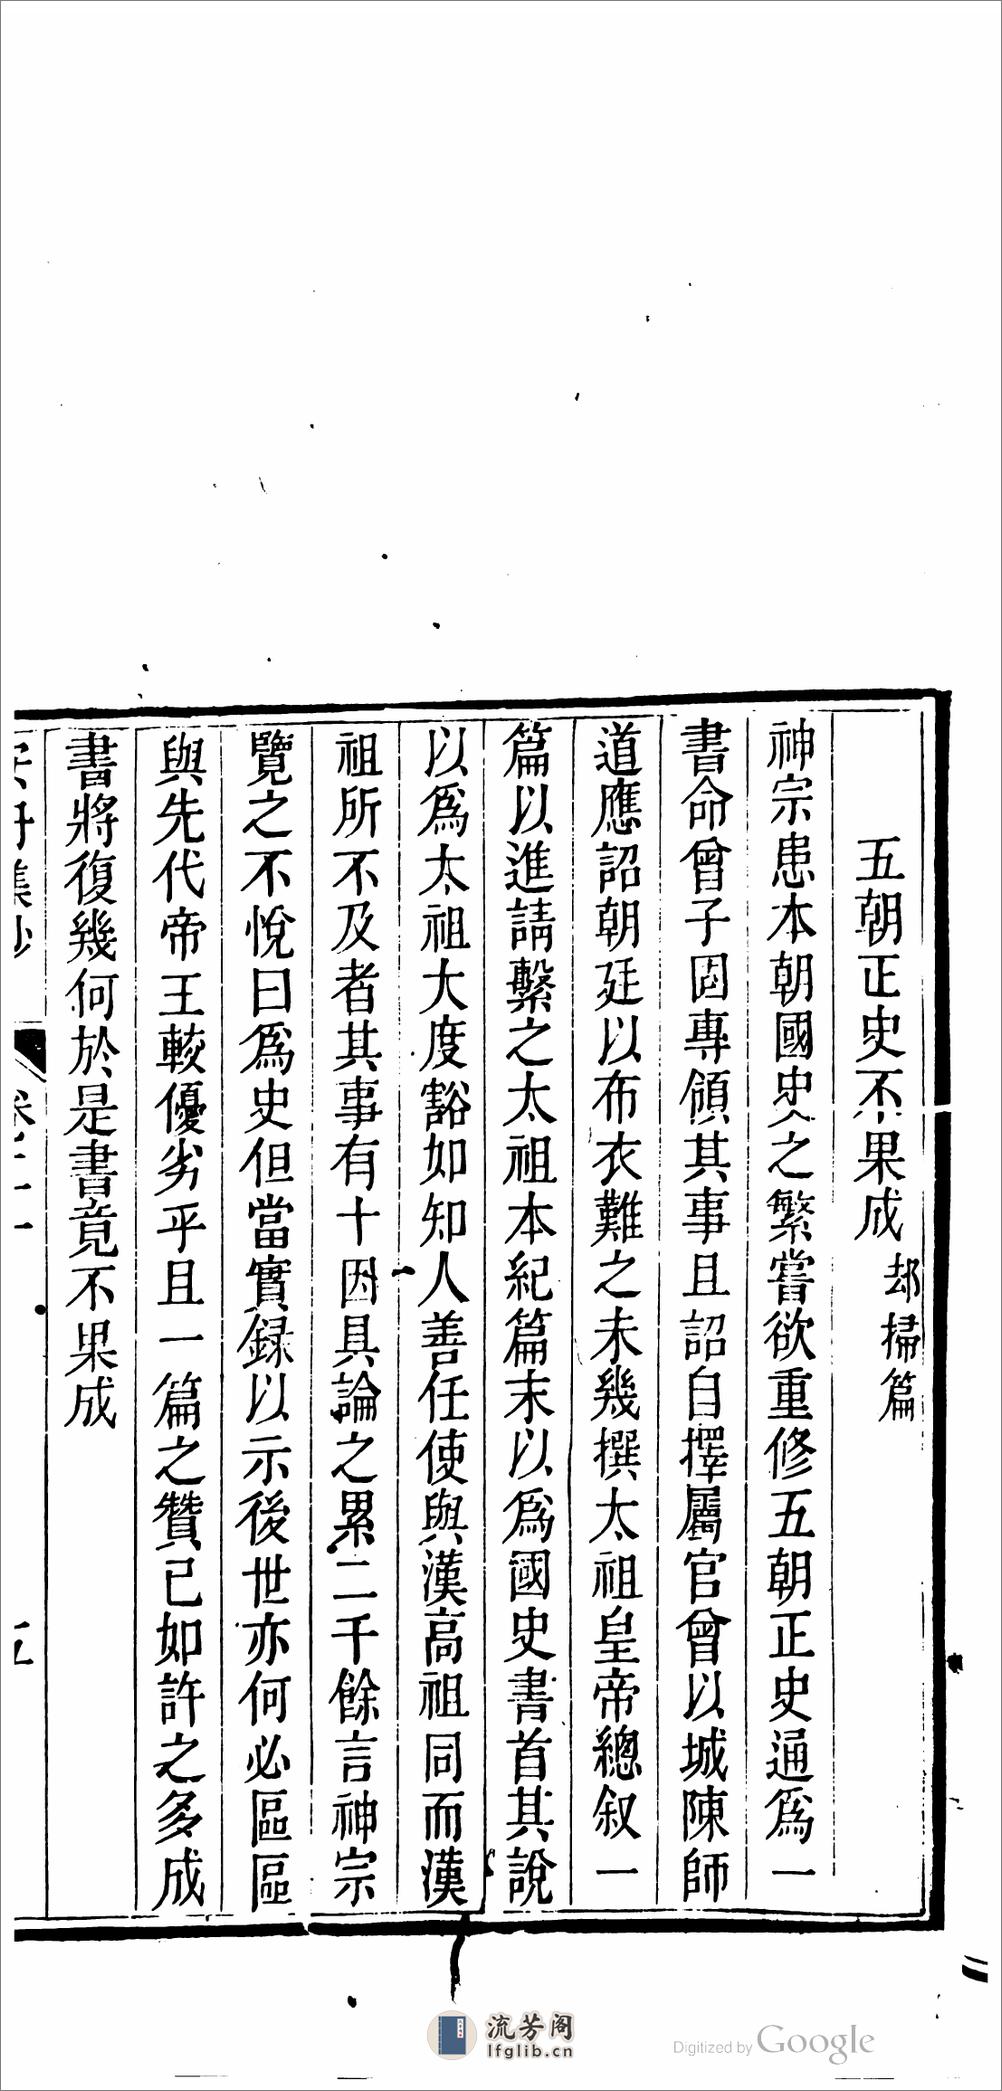 五朝正史不果成 却掃篇
神宗患本朝國史之繁嘗欲重修五朝正史通爲一
書命曾子固專領其事且詔自擇屬官曾以城陳師
道應詔朝廷以布衣難之未幾撰太祖皇帝總叙一
篇以進請繫之太祖本紀篇末以爲國史書首其說
以爲太祖大度豁如知人善任使與漢高祖同而漢
祖所不及者其事有十因具論之累二千餘言神宗
覽之不悅曰爲史但當實録以示後世亦何必區區
與先代帝王較優劣乎且一篇之贊已如許之多成
書將復幾何於是書竟不果成
流芳阁
lfglib.cn
Digitized by Google